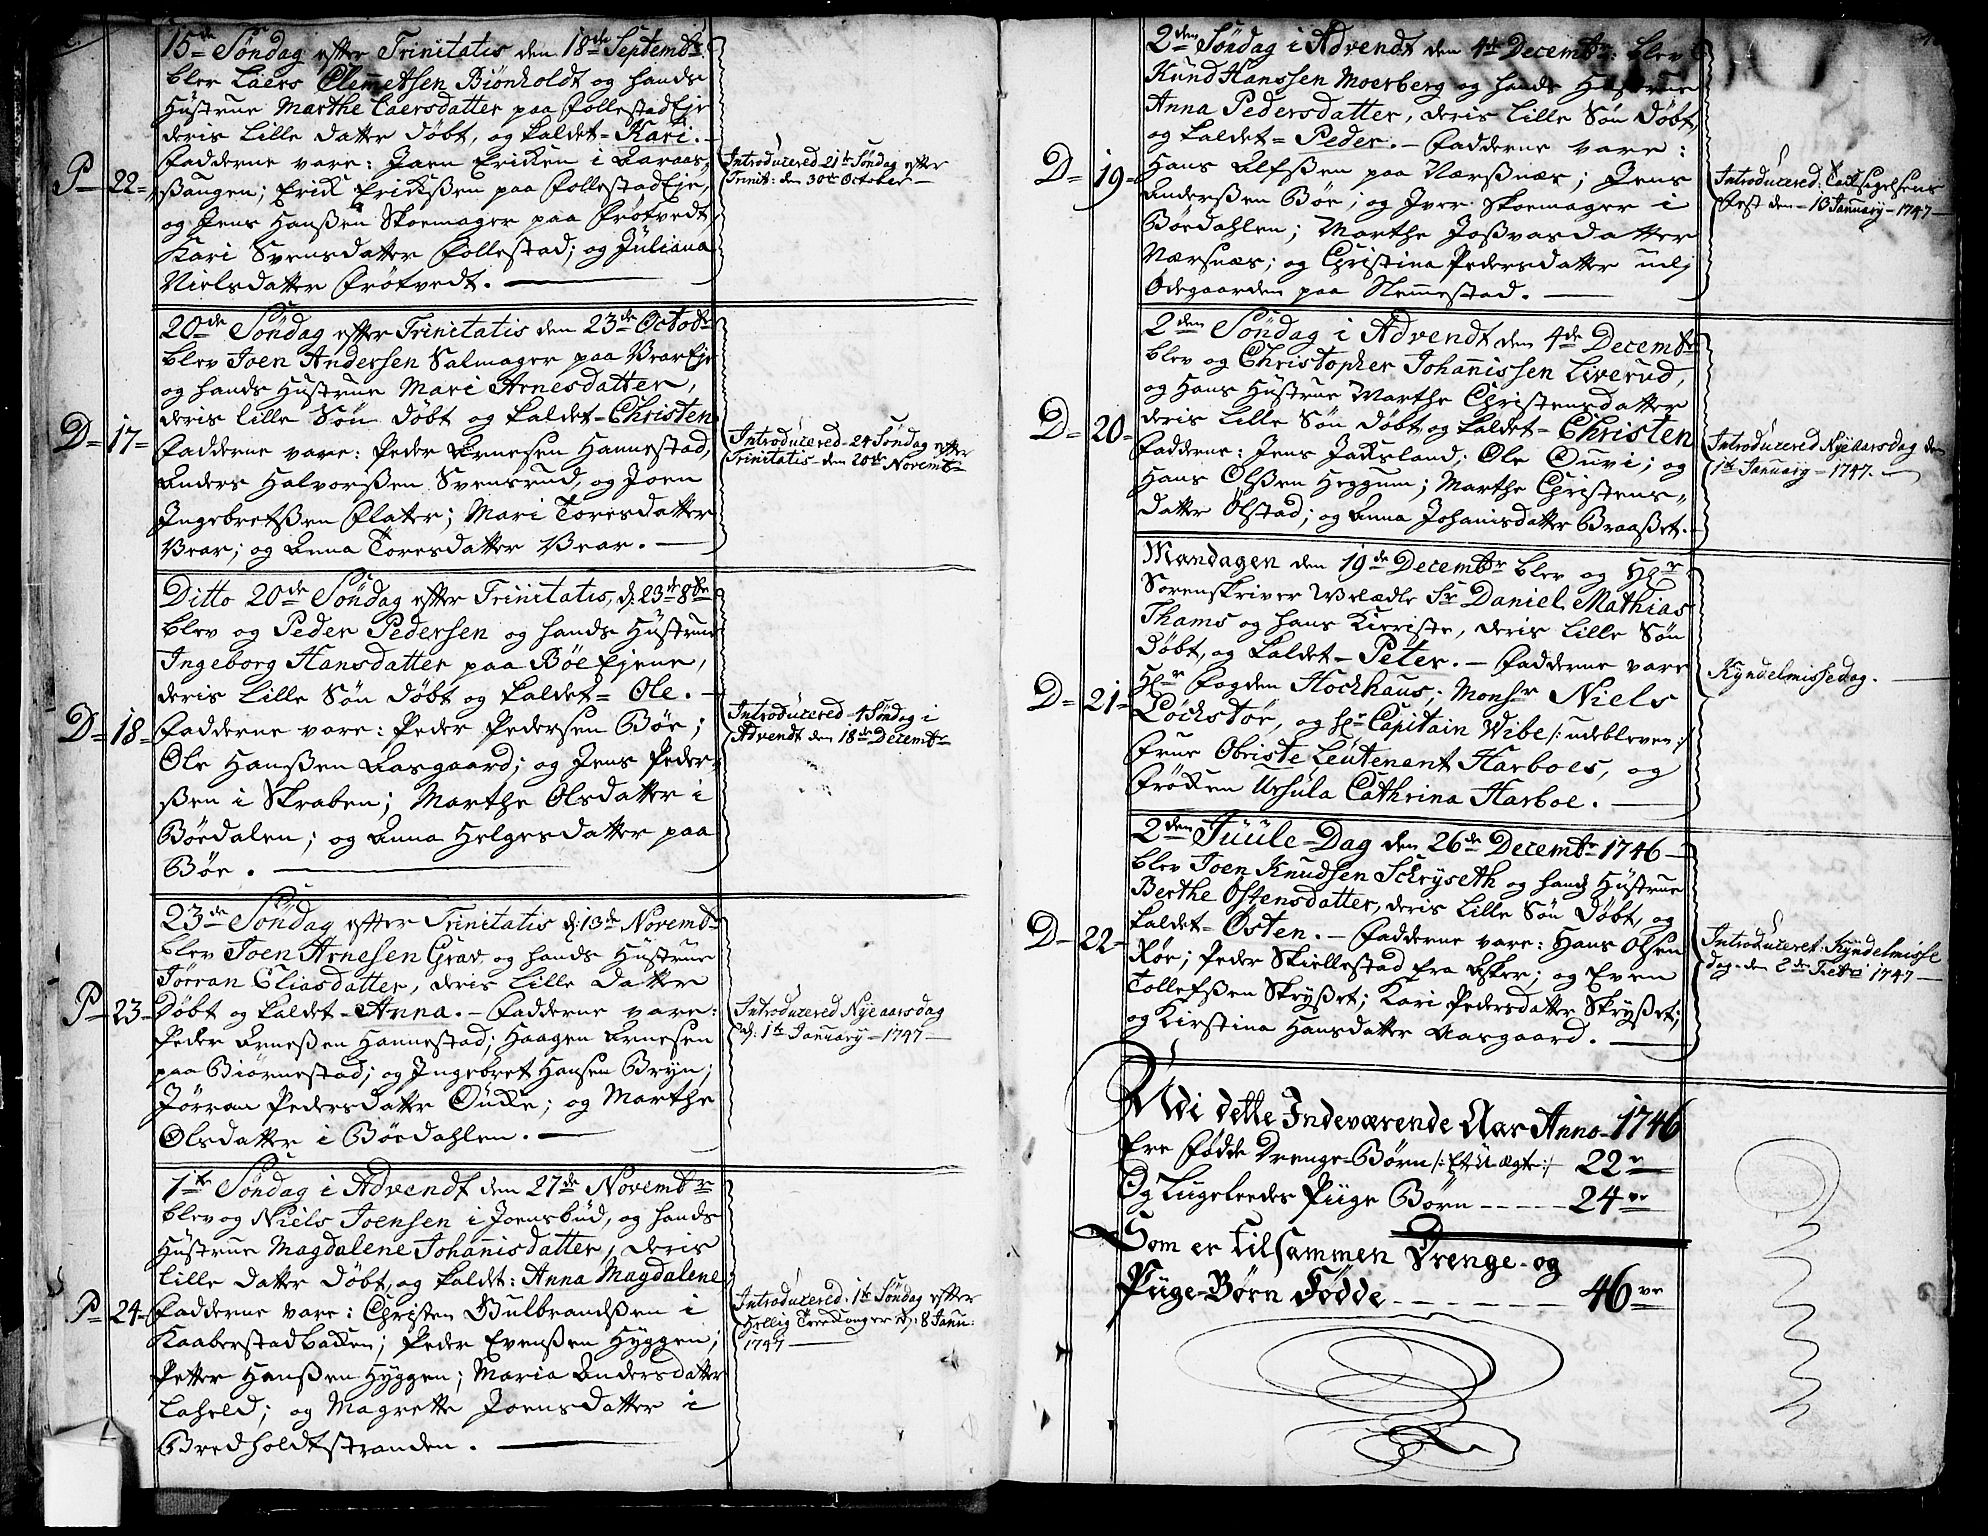 15de Søndag efter Trinitatis den 18de Septembr
blev Laers Clemetsen Biönholdt og hands
Hustrue Marthe Laersdatter paa FollestadEje
deris Lille Datter döbt, og kaldet = Kari. -
P = 22 = Fadderne vare: Joen Ericksen i Aaraas,,
ßaugen; Erick Erickßen paa FollestadEje,
og Jens Hanßen Skoemager paa Frötvedt
Kari Svensdatter Follestad; og Juliana
Nielsdatter Frötvedt.
Introducered 21de Søndag efter
Trinit: den 30te October
20de Søndag efter Trinitatis den 23de Octobr
blev Joen Andersen Salmager paa VearEje
og hands Hustrue Mari Arnesdatter,
deris lille Sön döbt og kaldet = Christen
D = 17 = Fadderne vare: Peder Arnesen Hannestad,
Anders Halvorßen Svensrud, og Joen
Ingebretßen Flater; Mari Toresdatter
Vear; og Anna Toresdatter Vear.
Introducered 24 Søndag efter
Trinitatis den 20de Novembr
Ditto 20de Søndag efter Trinitatis, d. 23de 8br
blev og Peder Pedersen og hands Hustrue
Ingeborg Hansdatter paa Böe Ejene,
deris Lille Sön döbt og kaldet = Ole. -
D = 18 = Fadderne vare: Peder Pedersen Böe;
Ole Hanßen Aasgaard; og Jens Peder-
ßen i Skraben; Marthe Olsdatter i
Böedalen; og Anna Helgesdatter paa
Böe.
Introducered 4 Søndag i
Advendt den 18de Decembr
23de Søndag efter Trinitatis d: 13de Novembr
blev Joen Arnesen Grav og hands Hustrue
Jörran Eliasdatter, deris Lille Datter
P = 23 = Döbt og kaldet = Anna. - Fadderne vare:
Peder Arneßen Hannestad; Haagen Arnesen
paa Biörnestad; og Ingebret Hansen Bryn;
Jörran Pedersdatter Ouke; og Marthe
Olsdatter i Böedahlen.
Introducered Nyeaarsdag
d: 1te January = 1747
1te Søndag i Advendt den 27de Novembr
blev og Niels Joensen i Joensbud, og hands
Hustrue Magdalene Johanisdatter, deris
lille datter döbt, og kaldet: Anna Magdalene
P = 24 = Fadderne vare: Christen Gulbrandßen i
Kaaberstadbacken; Peder Evenßen Hyggen;
Petter Hanßen Hyggen; Maria Andersdatter
Laheld; og Magrette Joensdatter i
Bredholdtstranden.
Introducered. 1te Søndag efter
Hellig Treekonger d: 8 Janu:
1747
2den Søndag i Advendt den 4de Decembr: blev
Knud Hanssen Moerberg og hands Hustrue
Anna Pedersdatter, deris lille Sön döbt,
og kaldet = Peder. - Fadderne vare:
D = 19 = Hans Alfßen paa Nærßnæs; Jens
Anderßen Böe; og Iver Skoemager i
Böedahlen; Marthe Joßvasdatter
Nærsnæs; og Christina Pedersdatter
Ödegaarden paa Slemmestad.
Introducered:
Fest den = January = 1747
2den Søndag i Advendt den 4de Decembr
blev og Christopher Johanissen Liverud,
og Hans Hustrue Marthe Christensdatter
D = 20 = deris lille Sön döbt, og kaldet = Christen
Fadderne: Jens Jacksland; Ole Ouvi; og
Hans Olßen Heggum; Marthe Christens,,
datter Ölstad; og Anna Johanisdatter Braaßet.
Introducered Nyeaarsdag den
1te January = 1747.
Mandagen den 19de Decembr blev og Hr
Sorenskriver Welædle Sr Daniel Mathias
Thams og hans Kieriste, deris lille Sön
döbt, og kaldet = Peter. - Fadderne vare
D = 21 = Hr Fogden Hockhaus; Monsr Niels
Löchstör, og hr Capitain Wibe /: udebleven :/
Frue Obriste Leutenant Harboes, og
Fröken Ursula Cathrina Harboe.
Kyndelmissedag.
2den Juule-Dag den 26de Decembr 1746
blev Joen Knudsen Schryseth og hands Hustrue
Berthe Ostensdatter, deris Lille Sön döbt, og
D = 22 = kaldet = Osten. - Fadderne vare: Hans Olsen
Röe; Peder Skiellestad fra Asker; og Even
Tollefßen Skryßet; Kari Pedersdatter Skryßet;
og Kirstina Hansdatter Aasgaard.
Introduceret: Kyndelmisse
Dag. den 2de Febr 1747
Udi dette Indeværende Aar Anno = 1746
Ere Födde Drenge-Börn /: Et U ægte :/ 22ve
Og Lugeleedes Piige Börn ----- 24ve
Som er tilsammen Drenge- og
Piige-Börn Födde ------ 46ve